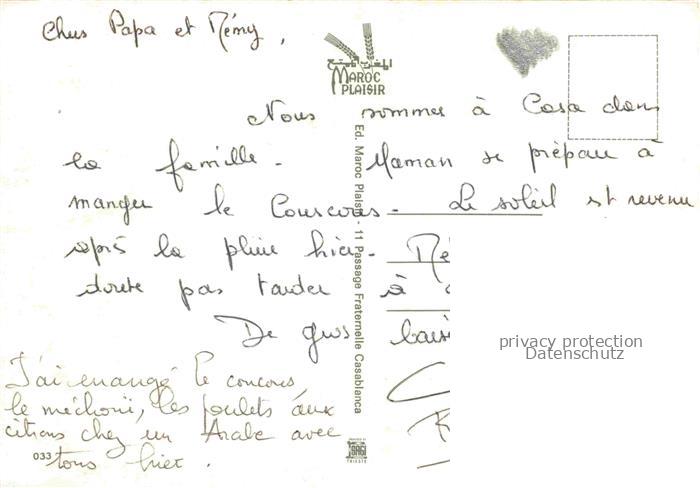 Chers Papa et Rémy,
المغرب الممتع
MAROC
PLAISIR
Nous sommes à Casa dans
la famille - Maman se prépare à
manger le Couscous - Le soleil est revenu
après la pluie hier - Ré
doute pas tarder à
De gros bais
J'ai mangé le couscous,
le méchoui, les poulets aux
citrons chez un Arabe avec
tous hier.
Ed. Maroc Plaisir - 11 Passage Fraternelle Casablanca
033
TRIESTE
privacy protection
Datenschutz